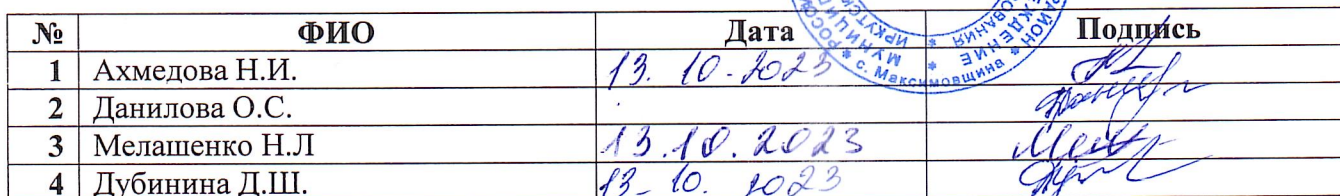 № ФИО Дата Подпись
1 Ахмедова Н.И. 13. 10-2023
2 Данилова О.С.
3 Мелашенко Н.Л 13.10.2023
4 Дубинина Д.Ш. 13-10. 2023
с. Максимовщина